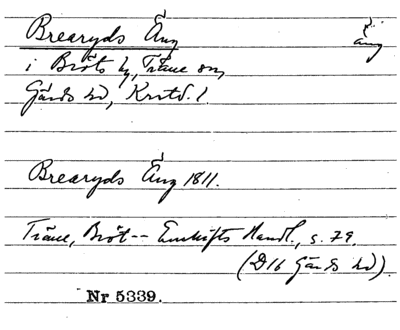 Brearyds Äng äng
i Bröts by, Träne sn,
Gärds hd, Krstd. l.
Brearyds Äng 1811.
Träne, Bröt -- Enskifts Handl., s. 79.
(D16 Gärds hd)
Nr 5339.